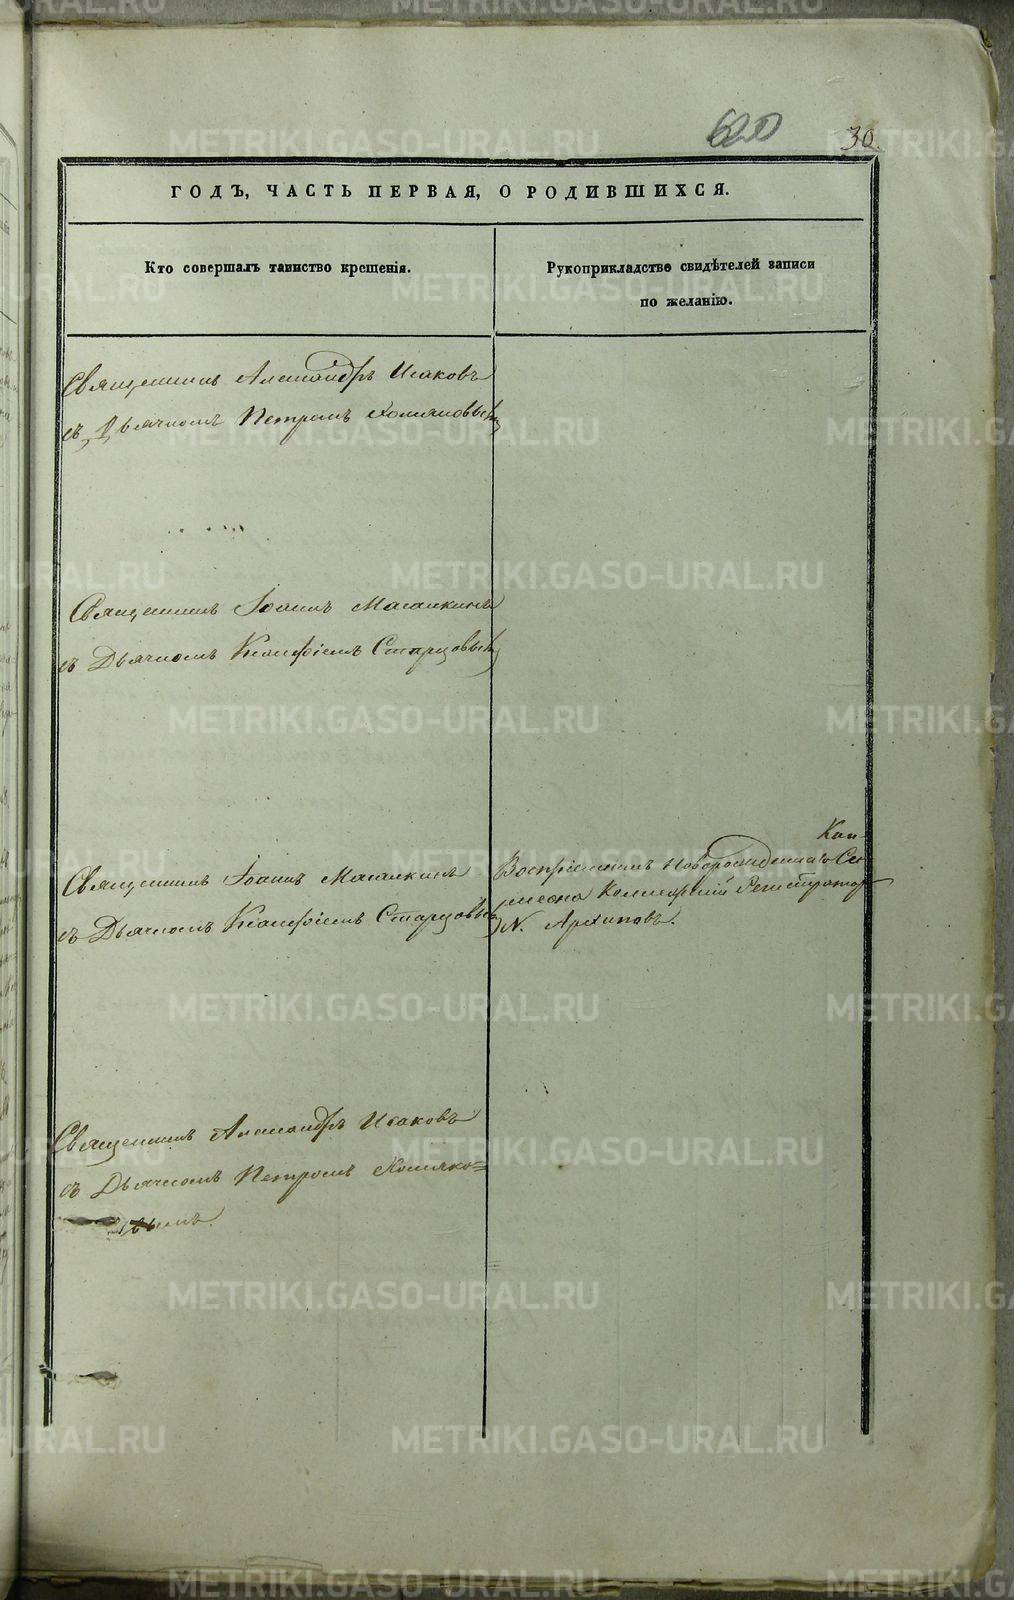 620
30.
ГОДЪ, ЧАСТЬ ПЕРВАЯ, О РОДИВШИХСЯ.
Кто совершалъ таинство крещенія.
Рукоприкладство свидѣтелей записи
по желанію.
Священникъ Александръ Исаковъ
съ Дьячкомъ Петромъ Хомяковымъ
Священникъ Іоаннъ Маганкинъ
съ Дьячкомъ Ксанфіемъ Старцовымъ
Священникъ Іоаннъ Маганкинъ
съ Дьячкомъ Ксанфіемъ Старцовымъ
Воспріемникъ новорожденнаго Си-
меона Коллежскій Регистраторъ
N. Архиповъ.
Священникъ Александръ Исаковъ
съ Дьячкомъ Петромъ Хомяко=
вымъ.
METRIKI.GASO-URAL.RU